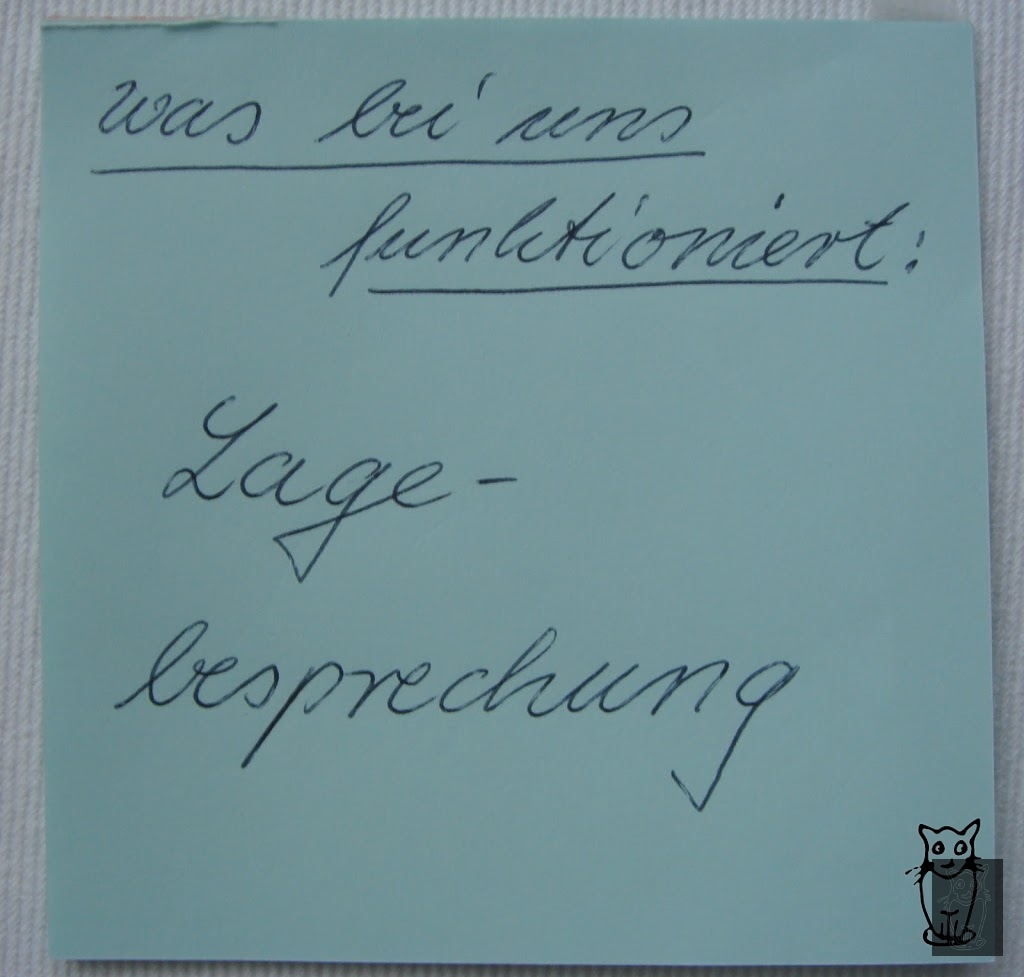 was bei uns
funktioniert:
Lage-
besprechung